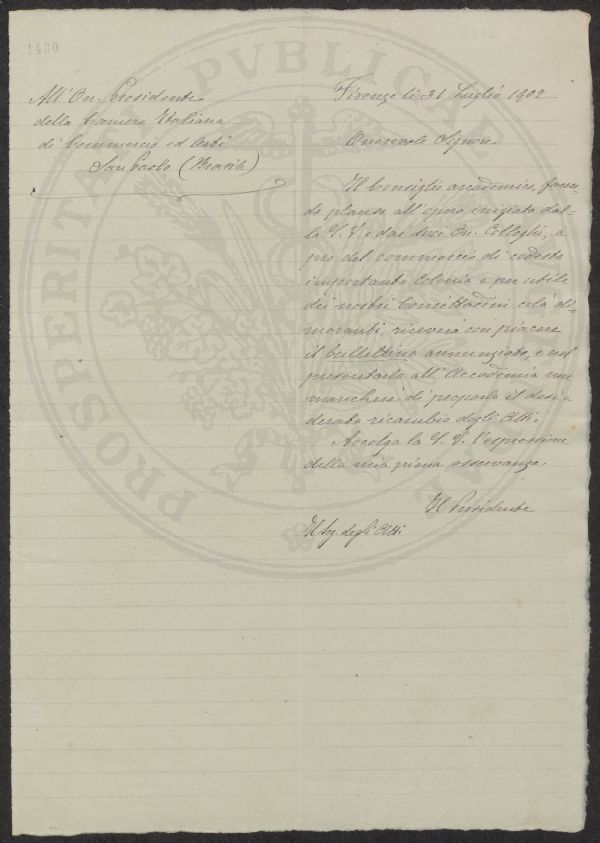 1460
All'On. Presidente
della Camera Italiana
di Commercio ed Arti
San Paolo (Brasile)
Firenze li 31 Luglio 1902
Onorevole Signore
Il Consiglio accademico, facen-
do plauso all'opera iniziata dal-
la S. V. e dai suoi On. Colleghi, a
pro del commercio di codesta
importante Colonia e per utile
dei nostri Concittadini colà di-
moranti, riceverà con piacere
il bullettino annunziato, e nel
presentarlo all'Accademia non
mancherà di proporle il desi-
derato ricambio degli Atti.
Accolga la S. V. l'espressione
della mia piena osservanza.
Il Presidente
Il Sg. degli Atti
PROSPERITATI PVBLICAE